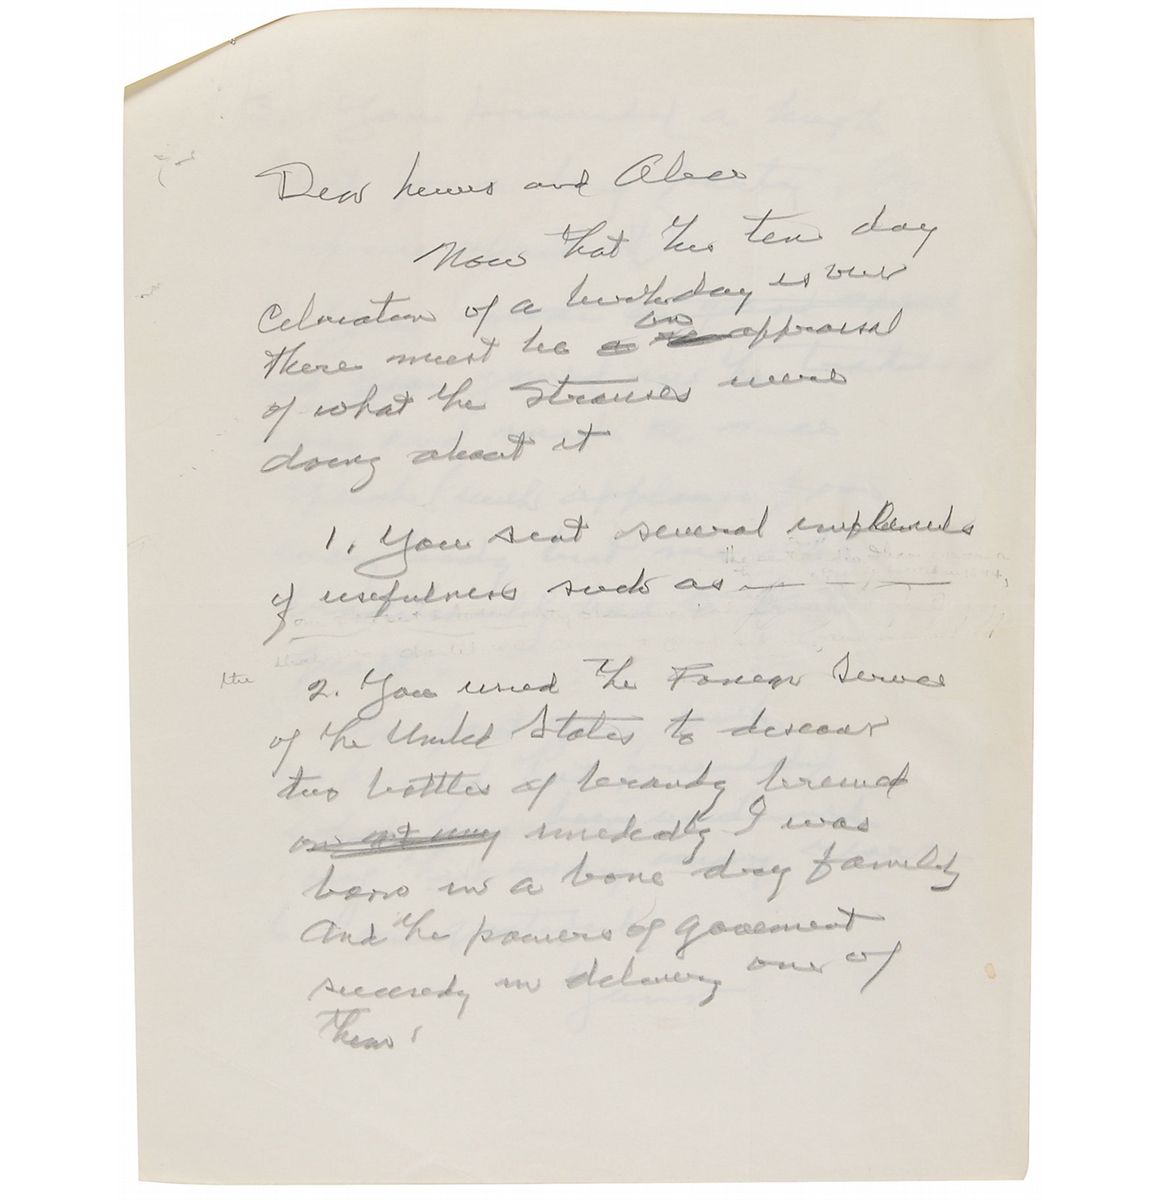 Dear Lewis and Alice
Now that the ten day
Celebration of a birthday is over
there must be an appraisal
of what the Strauses were
doing about it
1. You sent several implements
of usefulness such as — — —
2. You used the Foreign Service
of the United States to discover
two bottles of brandy brewed
I was
born in a bone dry family
And the powers of government
succeedg in delivering one of
them!